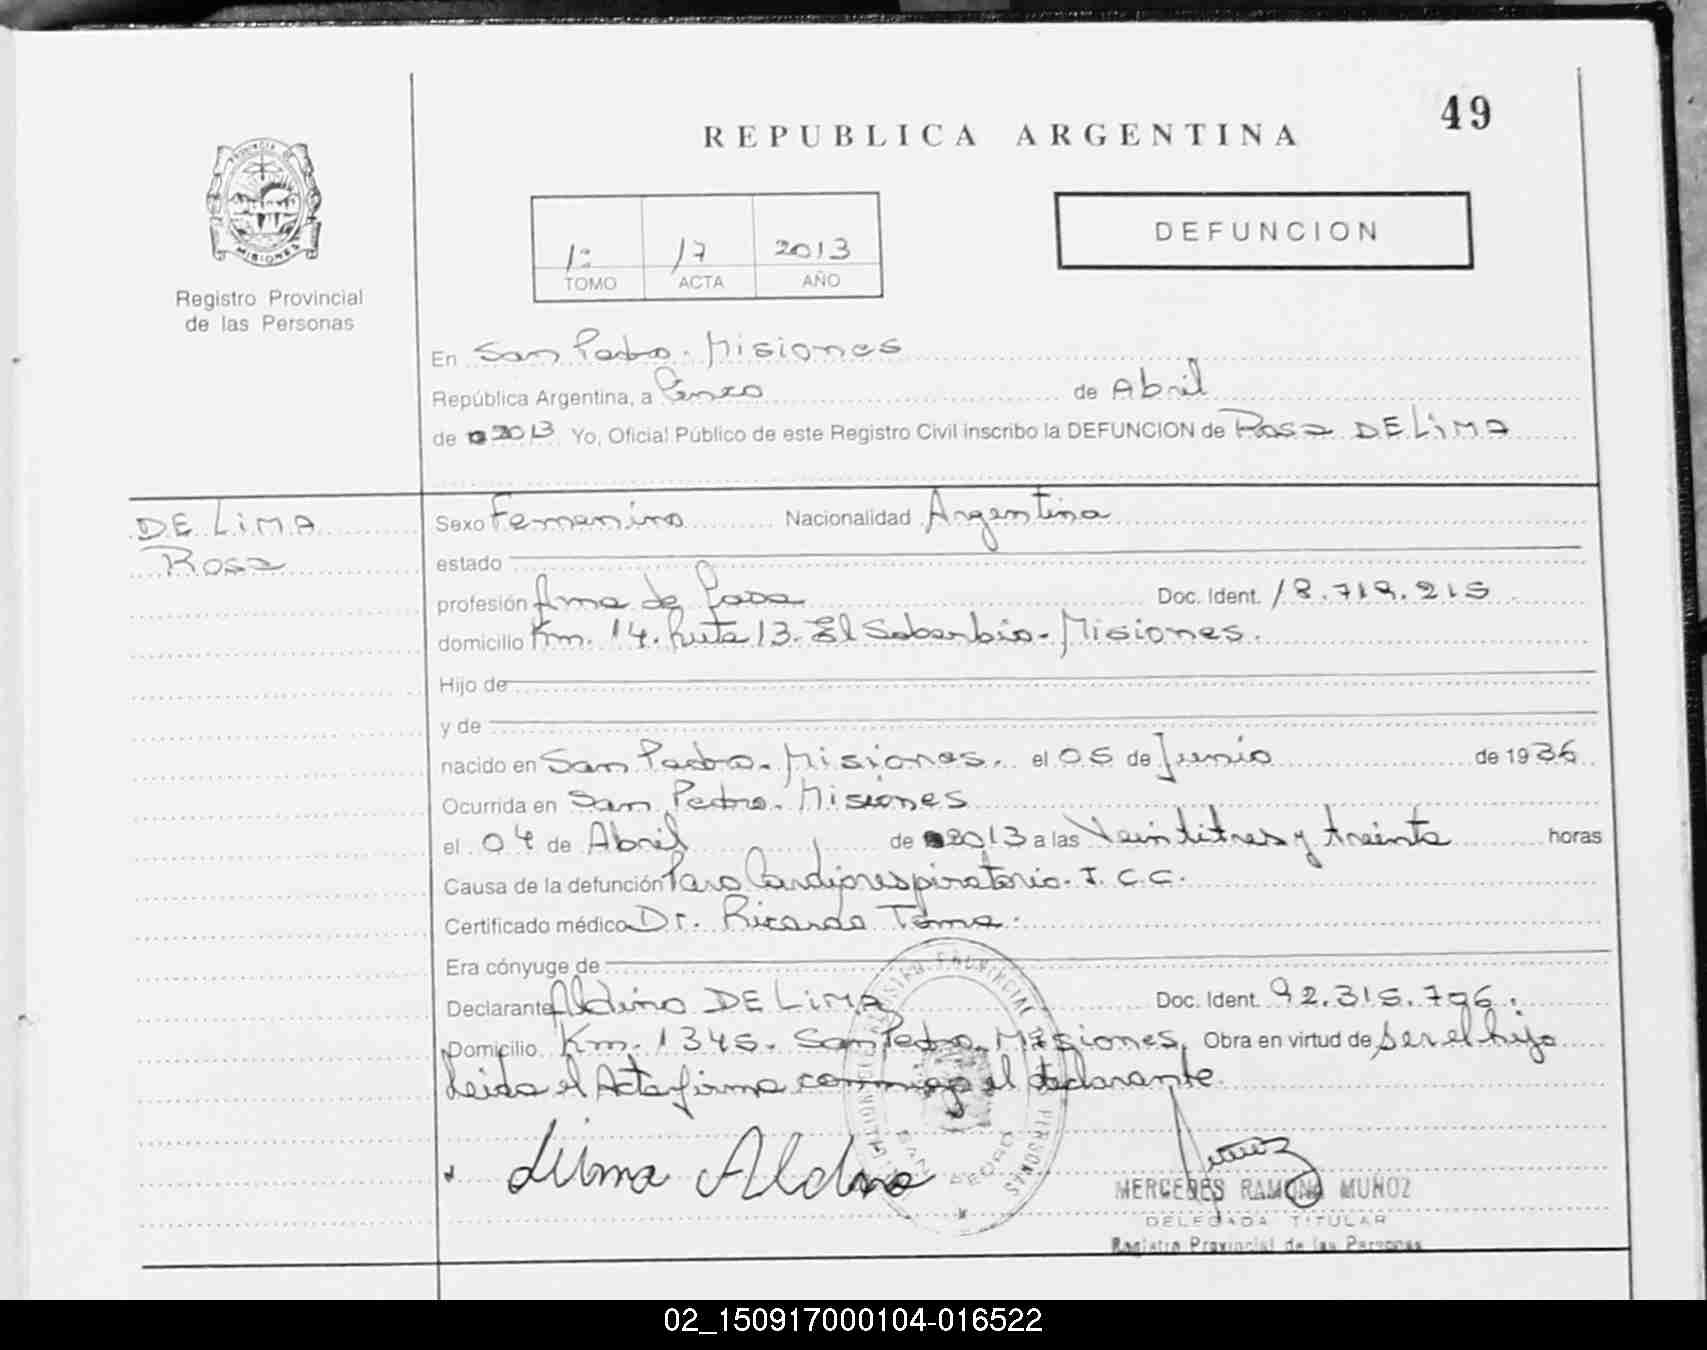 49
REPUBLICA ARGENTINA
PROVINCIA DE
MISIONES
Registro Provincial
de las Personas
1: 17 2013
TOMO ACTA AÑO
DEFUNCION
En San Pedro. Misiones
República Argentina, a Cinco de Abril
de 2013 Yo, Oficial Público de este Registro Civil inscribo la DEFUNCION de Rosa DE LiMA
DE LiMA
Rosa
Sexo Femenino Nacionalidad Argentina
estado
profesión Ama de Casa Doc. Ident. 18.719.215
domicilio Km. 14. Ruta 13. El Soberbio. Misiones.
Hijo de
y de
nacido en San Pedro. Misiones. el 05 de Junio de 1936
Ocurrida en San Pedro. Misiones
el 04 de Abril de 2013 a las Veintitres y treinta horas
Causa de la defunción Paro Cardiorespiratorio. I. C. C.
Certificado médico Dr. Ricardo Toma.
Era cónyuge de
Declarante Aldino DE LiMA Doc. Ident. 92.315.796.
Domicilio Km. 1345. San Pedro. Misiones. Obra en virtud de ser el hijo
Leida el Acta firma conmigo el declarante.
Lima Aldino
REGISTRO PROVINCIAL DE LAS PERSONAS
SAN PEDRO
MERCEDES RAMONA MUÑOZ
DELEGADA TITULAR
Registro Provincial de las Personas
02_150917000104-016522